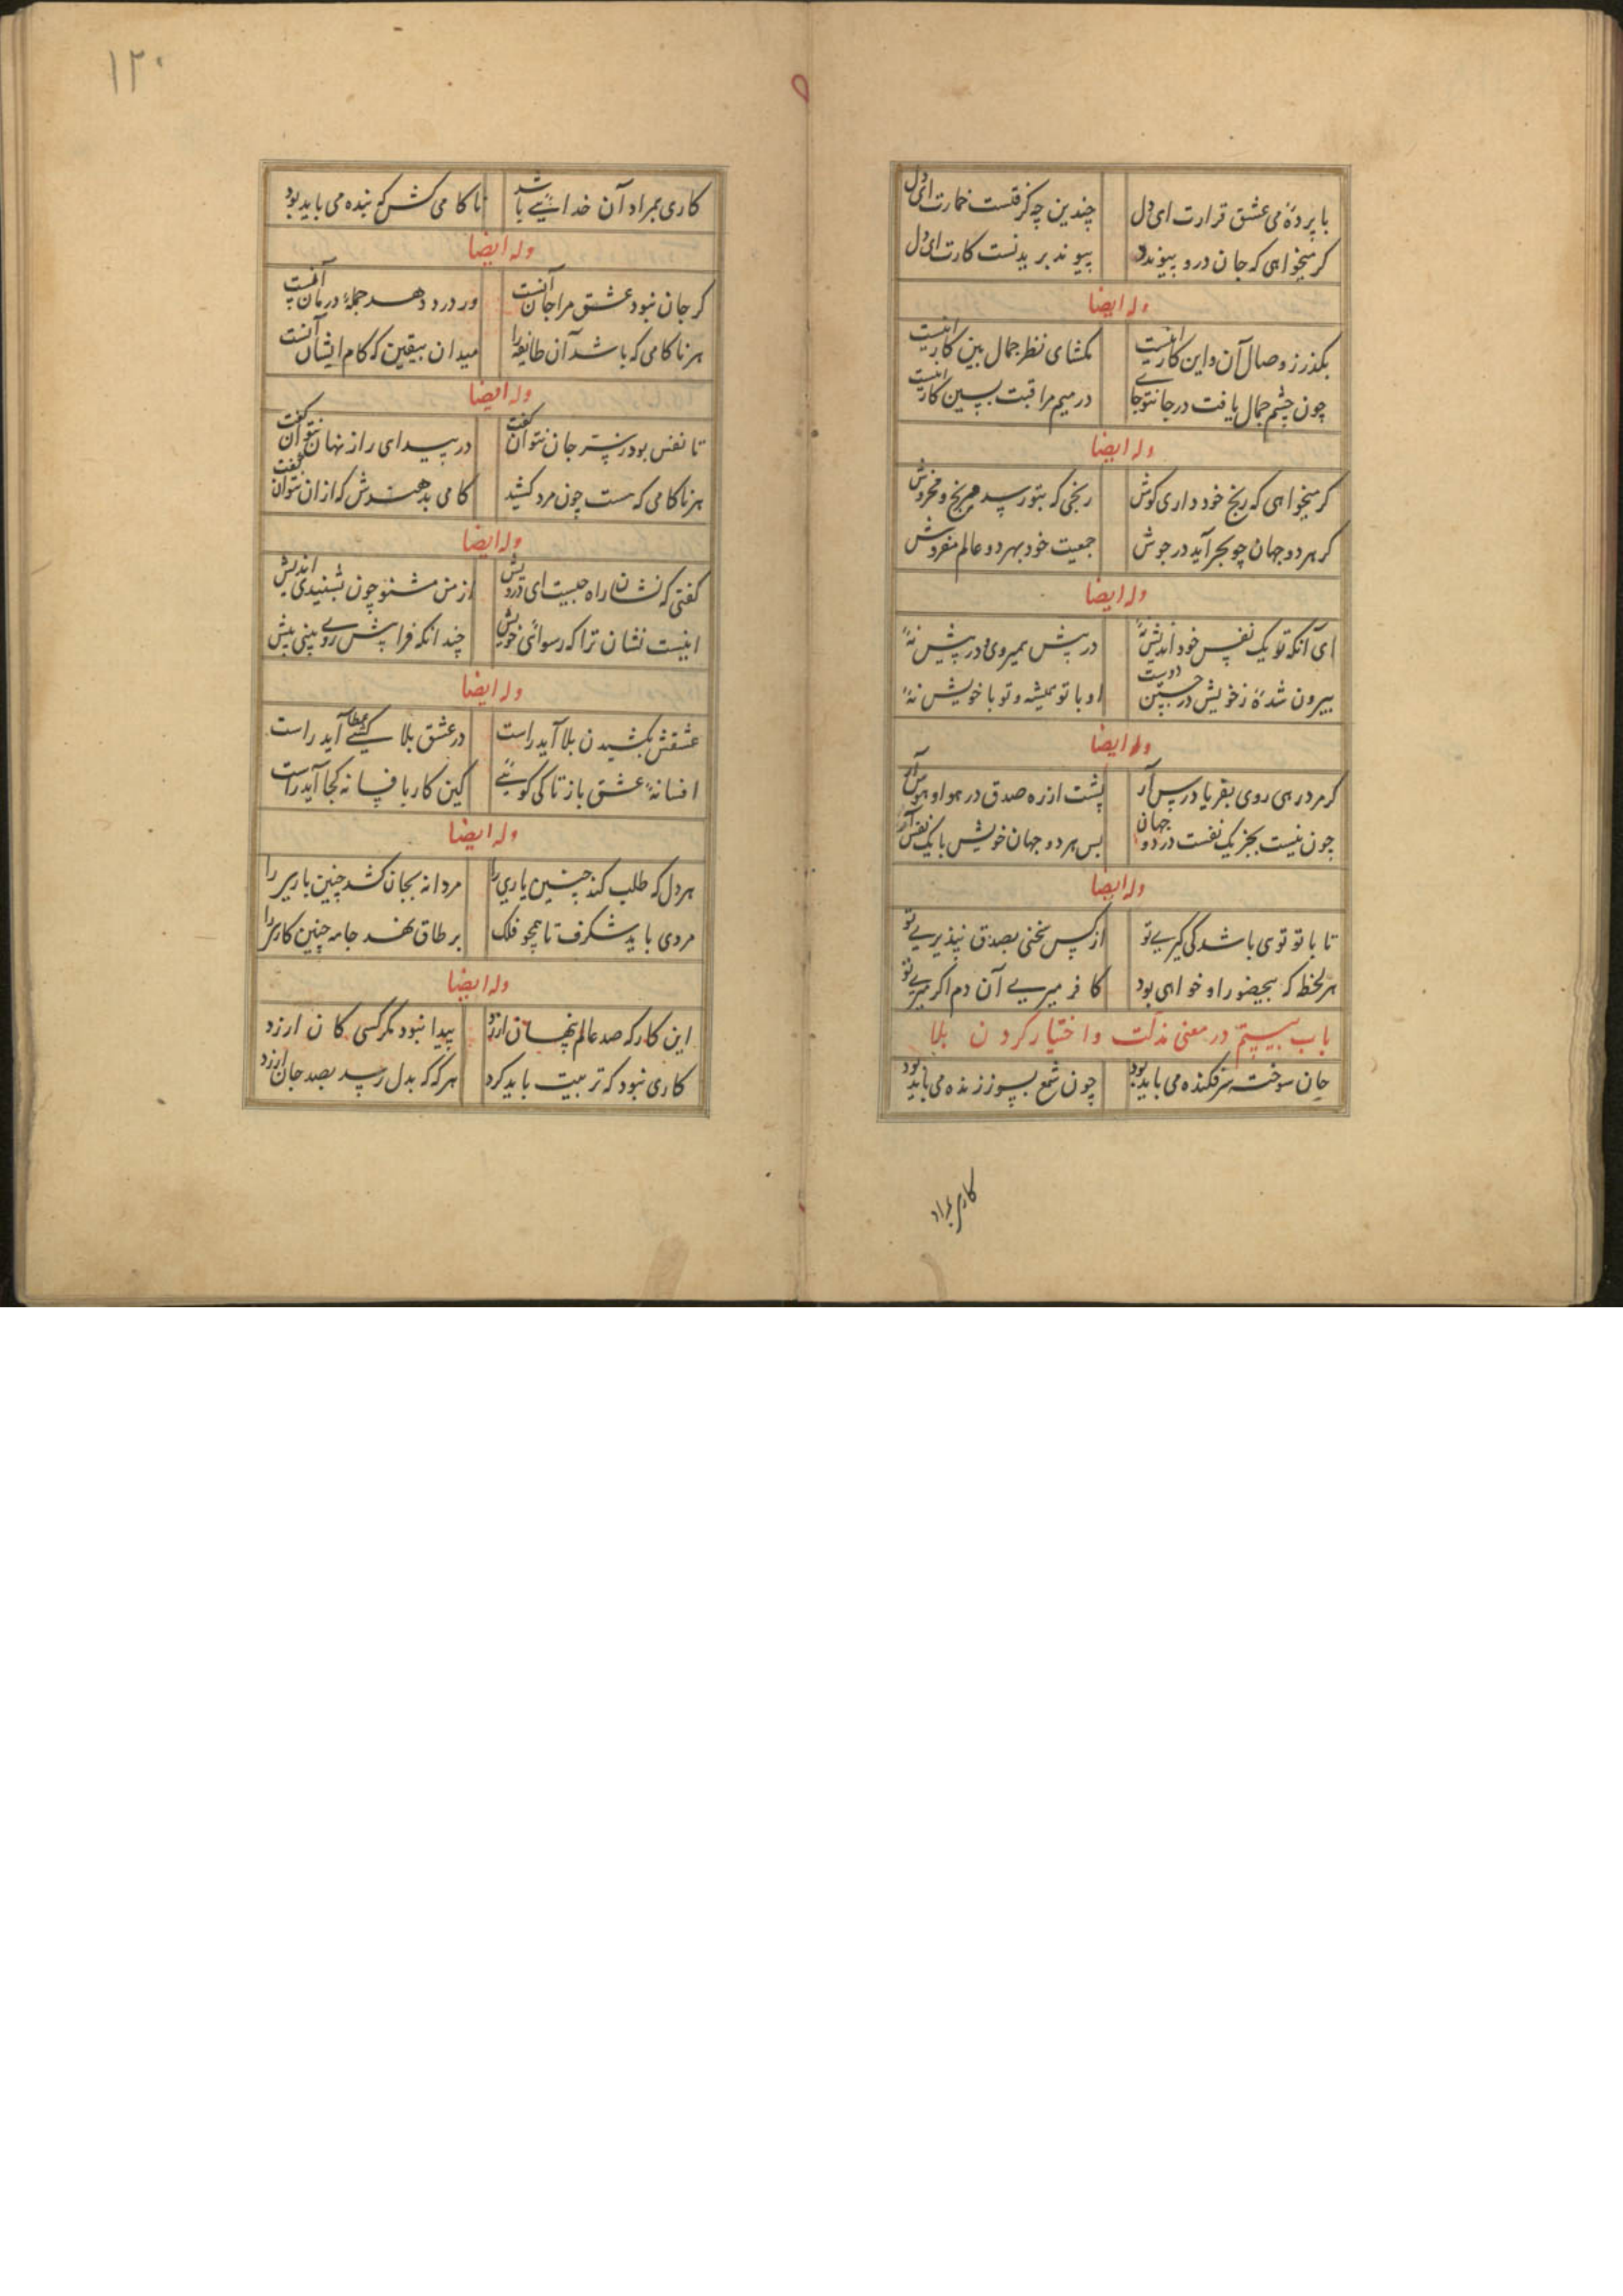 با پردهٔ می عشق قرارت ای دل چندین چه گرفتست خمارت ای دل
کر میخواهی که جان درو پیوندد پیوند بریدنست کارت ای دل
وله ایضا
بگذر ز وصال آن و این کار اینست بگشای نظر جمال بین کار اینست
چون چشم جمال یافت در جانتو جای در میم مراقبت ببین کار اینست
وله ایضا
کر میخواهی که رنج خود داری کوش رنجی که بتو رسد مرنج و مخروش
کر هر دو جهان چو بحر آید در جوش جمعیت خود بهر دو عالم مفروش
وله ایضا
ای آنکه تو یک نفس خود اندیش نهٔ در پیش همیروی و در پیش نهٔ
بیرون شدهٔ ز خویش در جستن دوست او با تو همیشه و تو با خویش نهٔ
وله ایضا
کر مرد رهی روی بفریاد رس آر پشت از ره صدق در هوا و هوس آر
چون نیست بجز یک نفست در دو جهان پس هر دو جهان خویش با یک نفس آر
وله ایضا
تا با تو توی باشد کی گیری تو از کس سخنی بصدق نپذیری تو
هر لحظه که بیحضور او خواهی بود کافر میری آن دم اگر میری تو
باب بیستم در معنی مذلت و اختیار کردن بلا
جان سوخته سرفکنده می باید بود چون شمع بسوز زنده می باید بود
کاری بمراد
۱۲۰
کاری بمراد آن خدایی باشد ناکامی کش که بنده می باید بود
وله ایضا
کر جان نبود عشق مرا جان آنست ور درد دهد جملهٔ درمان آنست
هر ناکامی که باشد آن طایفه را میدان بیقین که کام ایشان آنست
وله ایضا
تا نفس بود ز سر جان نتوان گفت در پیدای راز نهان نتوان گفت
هر ناکامی که هست چون مرد کشید کامی بدهندش که ازان نتوان گفت
وله ایضا
کفتی که نشان راه چیست ای درویش از من مشنو چون بشنیدی اندیش
اینست نشان ترا که رسوائی خویش چندانکه فراپیش روی بینی بیش
وله ایضا
عشقش بکشیدن بلا آید راست در عشق بلا کشی عطا آید راست
افسانهٔ عشق باز تا کی کویی کین کار بافسانه کجا آید راست
وله ایضا
هر دل که طلب کند چنین یاری را مردانه بجان کشد چنین باری را
مردی باید شکرف تا همچو فلک بر طاق نهد جامه چنین کاری را
وله ایضا
این کار که صد عالم پنهان ارزد پیدا نبود مکر کسی کان ارزد
کاری نبود که تربیت باید کرد هر کرکه بدل رسد بصد جان ارزد